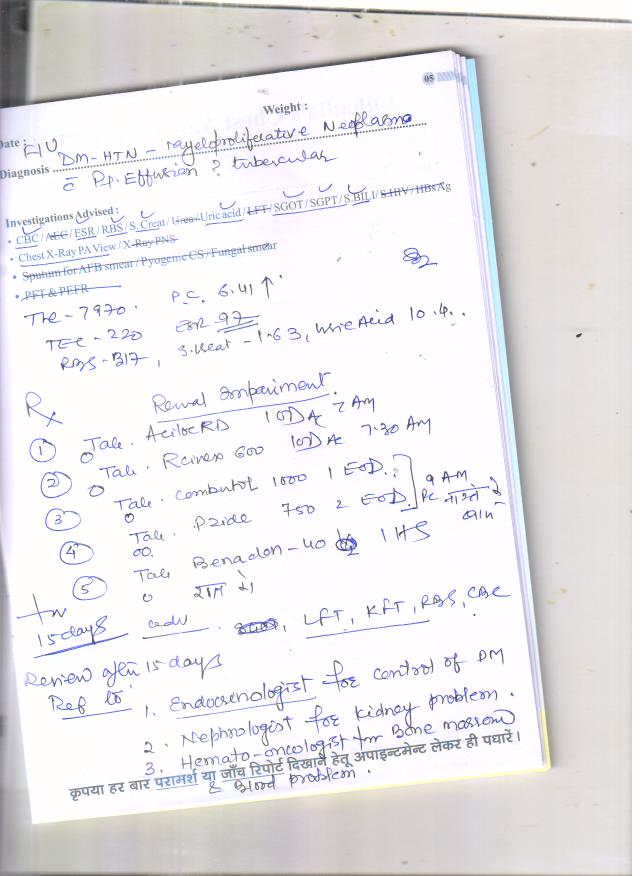 05
Weight :
Date : F/U
Diagnosis DM-HTN - myeloproliferative Neoplasm
c̄ Pp. Effusion ? tubercular
Investigations Advised :
• CBC / AEC / ESR / RBS / S. Creat / Urea / Uric acid / LFT / SGOT / SGPT / S.BILI / S.HIV / HBsAg
• Chest X-Ray PA View / X-Ray PNS
• Sputum for AFB smear / Pyogenic CS / Fungal smear
• PFT & PEFR
TLC - 7970. P.C. 6.41 ↑
TEC - 220 ESR 97
RBS - 317, S. Creat - 1.63, Uric Acid 10.4..
Rx Renal Impairment.
① Tab. Aciloc RD 1 OD AC 7 AM
② Tab. Rcinex 600 1 OD AC 7.30 AM
③ Tab. Combutol 1000 1 EOD.. 9 AM
④ Tab. Pzide 750 2 EOD PC नाश्ते के बाद
⑤ Tab Benadon - 40 1 HS
रात में
15 days adv. LFT, KFT, RBS, CBC
Review after 15 days
Ref to 1. Endocrenologist for control of DM
2. Nephrologist for kidney problem.
3. Hemato-oncologist for Bone marrow
& blood problem.
कृपया हर बार परामर्श या जाँच रिपोर्ट दिखाने हेतू अपाइन्टमेन्ट लेकर ही पधारें।